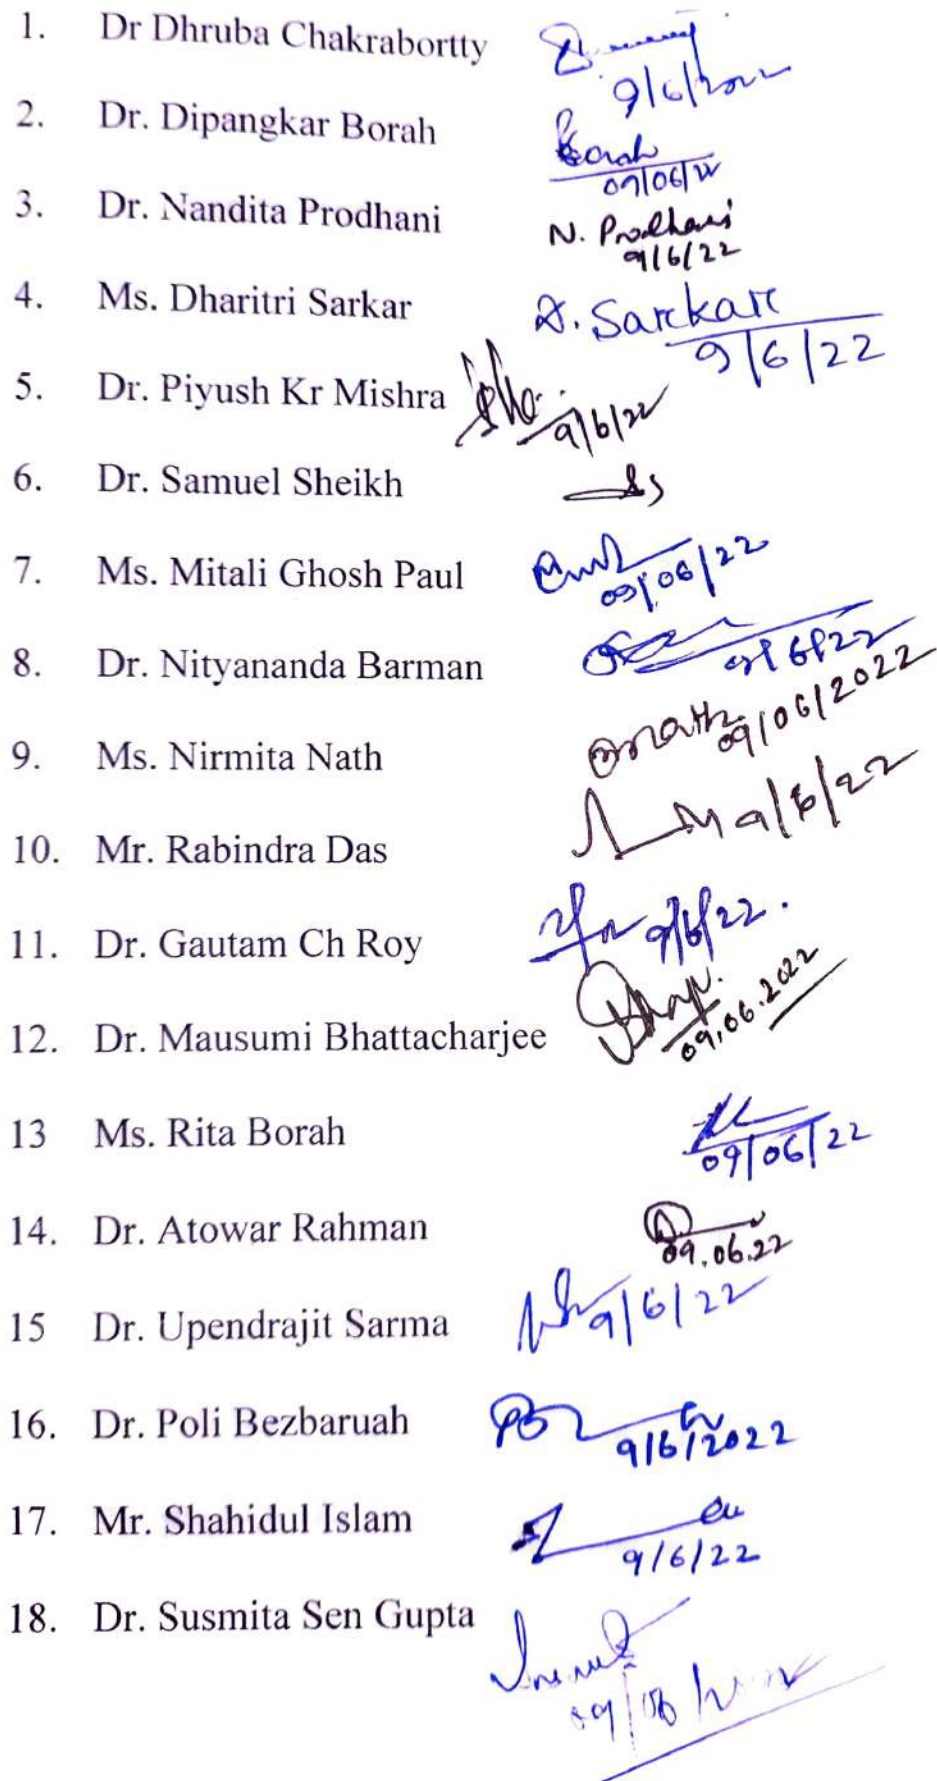 1. Dr Dhruba Chakrabortty
9/6/2022
2. Dr. Dipangkar Borah
Borah
09/06/22
3. Dr. Nandita Prodhani
N. Prodhani
9/6/22
4. Ms. Dharitri Sarkar
D. Sarkar
9/6/22
5. Dr. Piyush Kr Mishra
9/6/22
6. Dr. Samuel Sheikh
7. Ms. Mitali Ghosh Paul
09/06/22
8. Dr. Nityananda Barman
9/6/22
9. Ms. Nirmita Nath
09/06/2022
10. Mr. Rabindra Das
9/6/22
11. Dr. Gautam Ch Roy
9/6/22.
12. Dr. Mausumi Bhattacharjee
09.06.2022
13 Ms. Rita Borah
09/06/22
14. Dr. Atowar Rahman
09.06.22
15 Dr. Upendrajit Sarma
9/6/22
16. Dr. Poli Bezbaruah
9/6/2022
17. Mr. Shahidul Islam
9/6/22
18. Dr. Susmita Sen Gupta